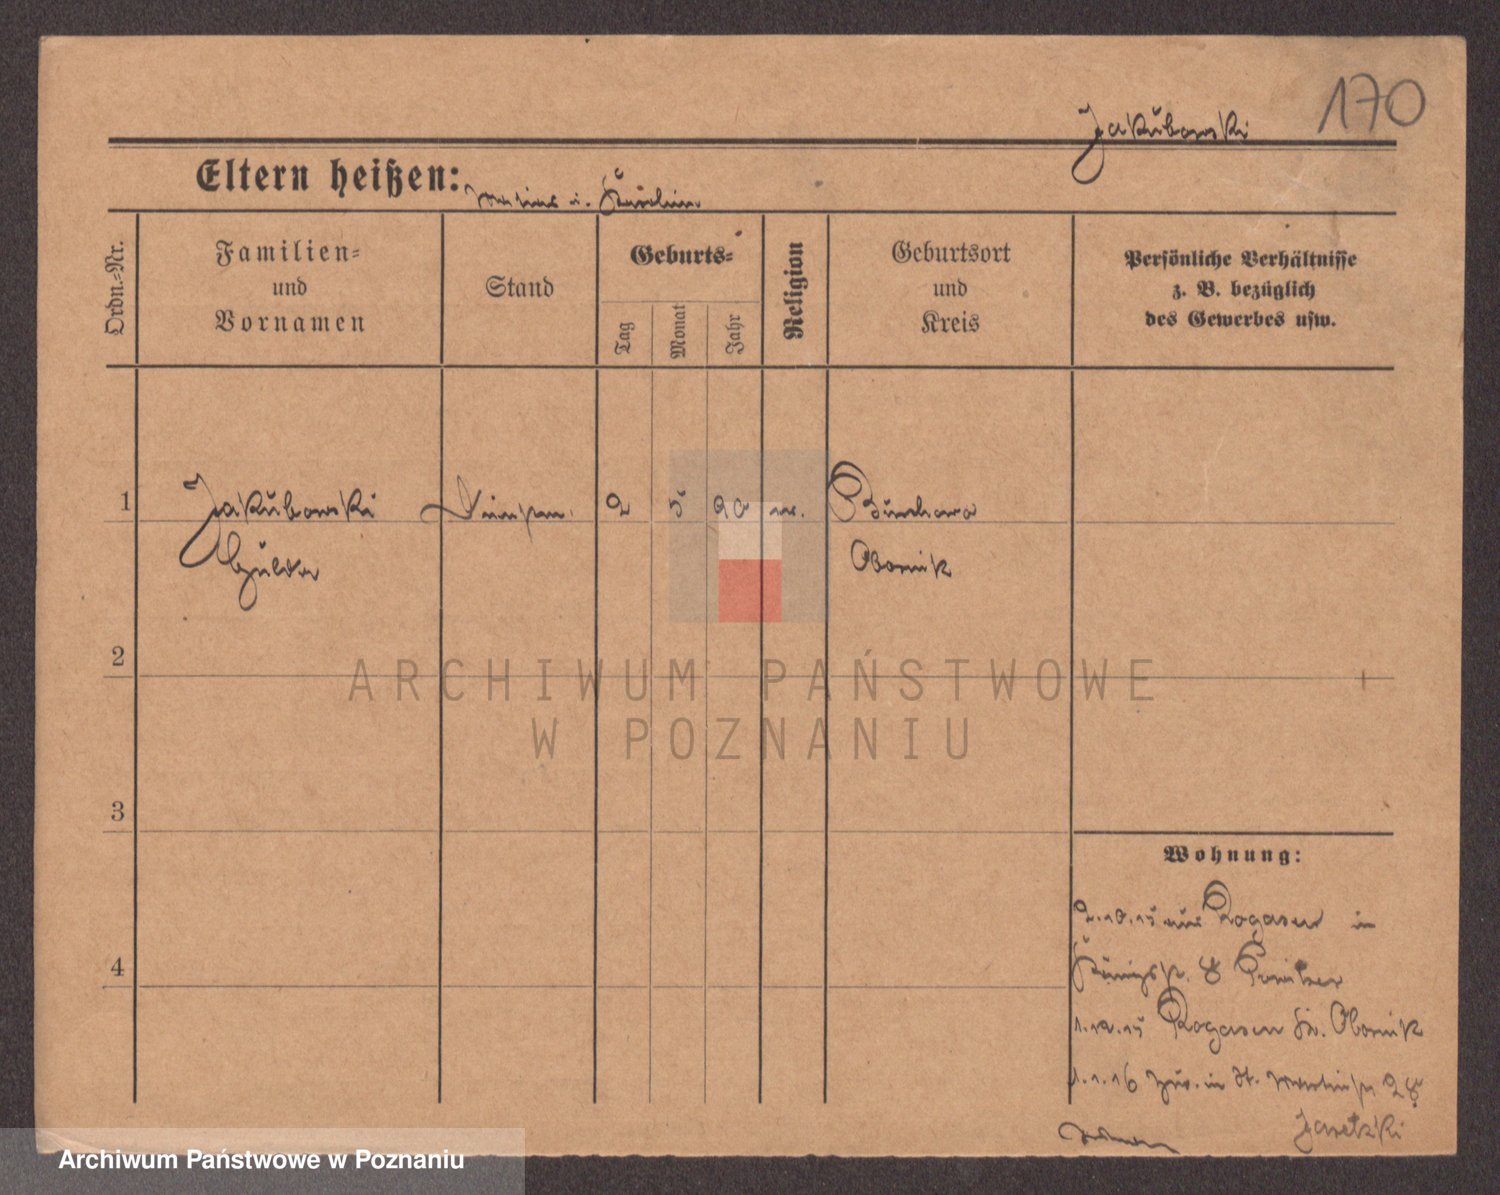 170
Jakubowski
Eltern heißen:
Ordn.=Nr.
Familien=
und
Vornamen
Stand
Geburts=
Tag
Monat
Jahr
Religion
Geburtsort
und
Kreis
Persönliche Verhältnisse
z. B. bezüglich
des Gewerbes usw.
1 Jakubowski 2 5 90
Obornik
2
3
4
Wohnung:
2.10.15 Rogasen in
Königstr. 8
1.12.15 Rogasen Kr. Obornik
1.1.16 zur. in St. Martinstr 28
ARCHIWUM PAŃSTWOWE
W POZNANIU
Archiwum Państwowe w Poznaniu